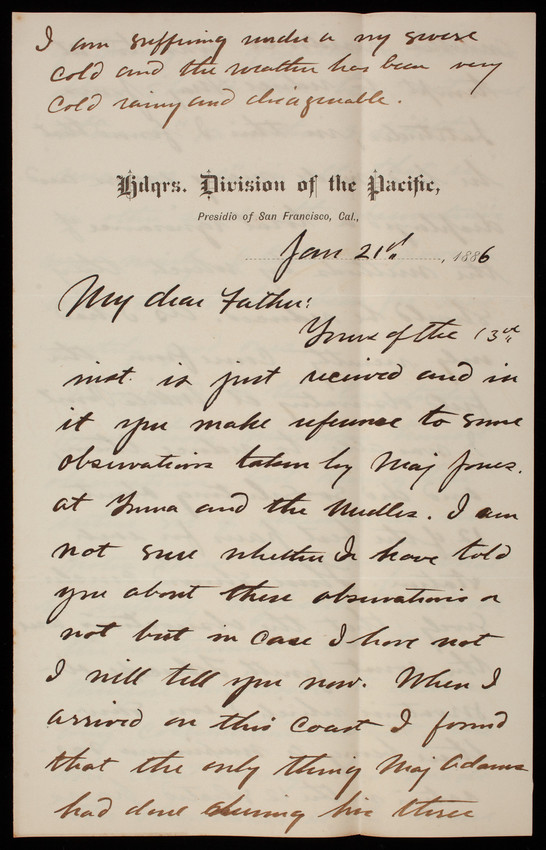 I am suffering under a very severe
cold and the weather has been very
cold rainy and disagreeable.
Hdqrs. Division of the Pacific,
Presidio of San Francisco, Cal.,
Jan 21st, 1886
My dear Father:
Yours of the 13th
inst. is just received and in
it you make reference to some
observations taken by Maj Jones.
at Yuma and the Needles. I am
not sure whether I have told
you about these observations or
not but in case I have not
I will tell you now. When I
arrived on this Coast I found
that the only thing Maj Adams
had done during his three